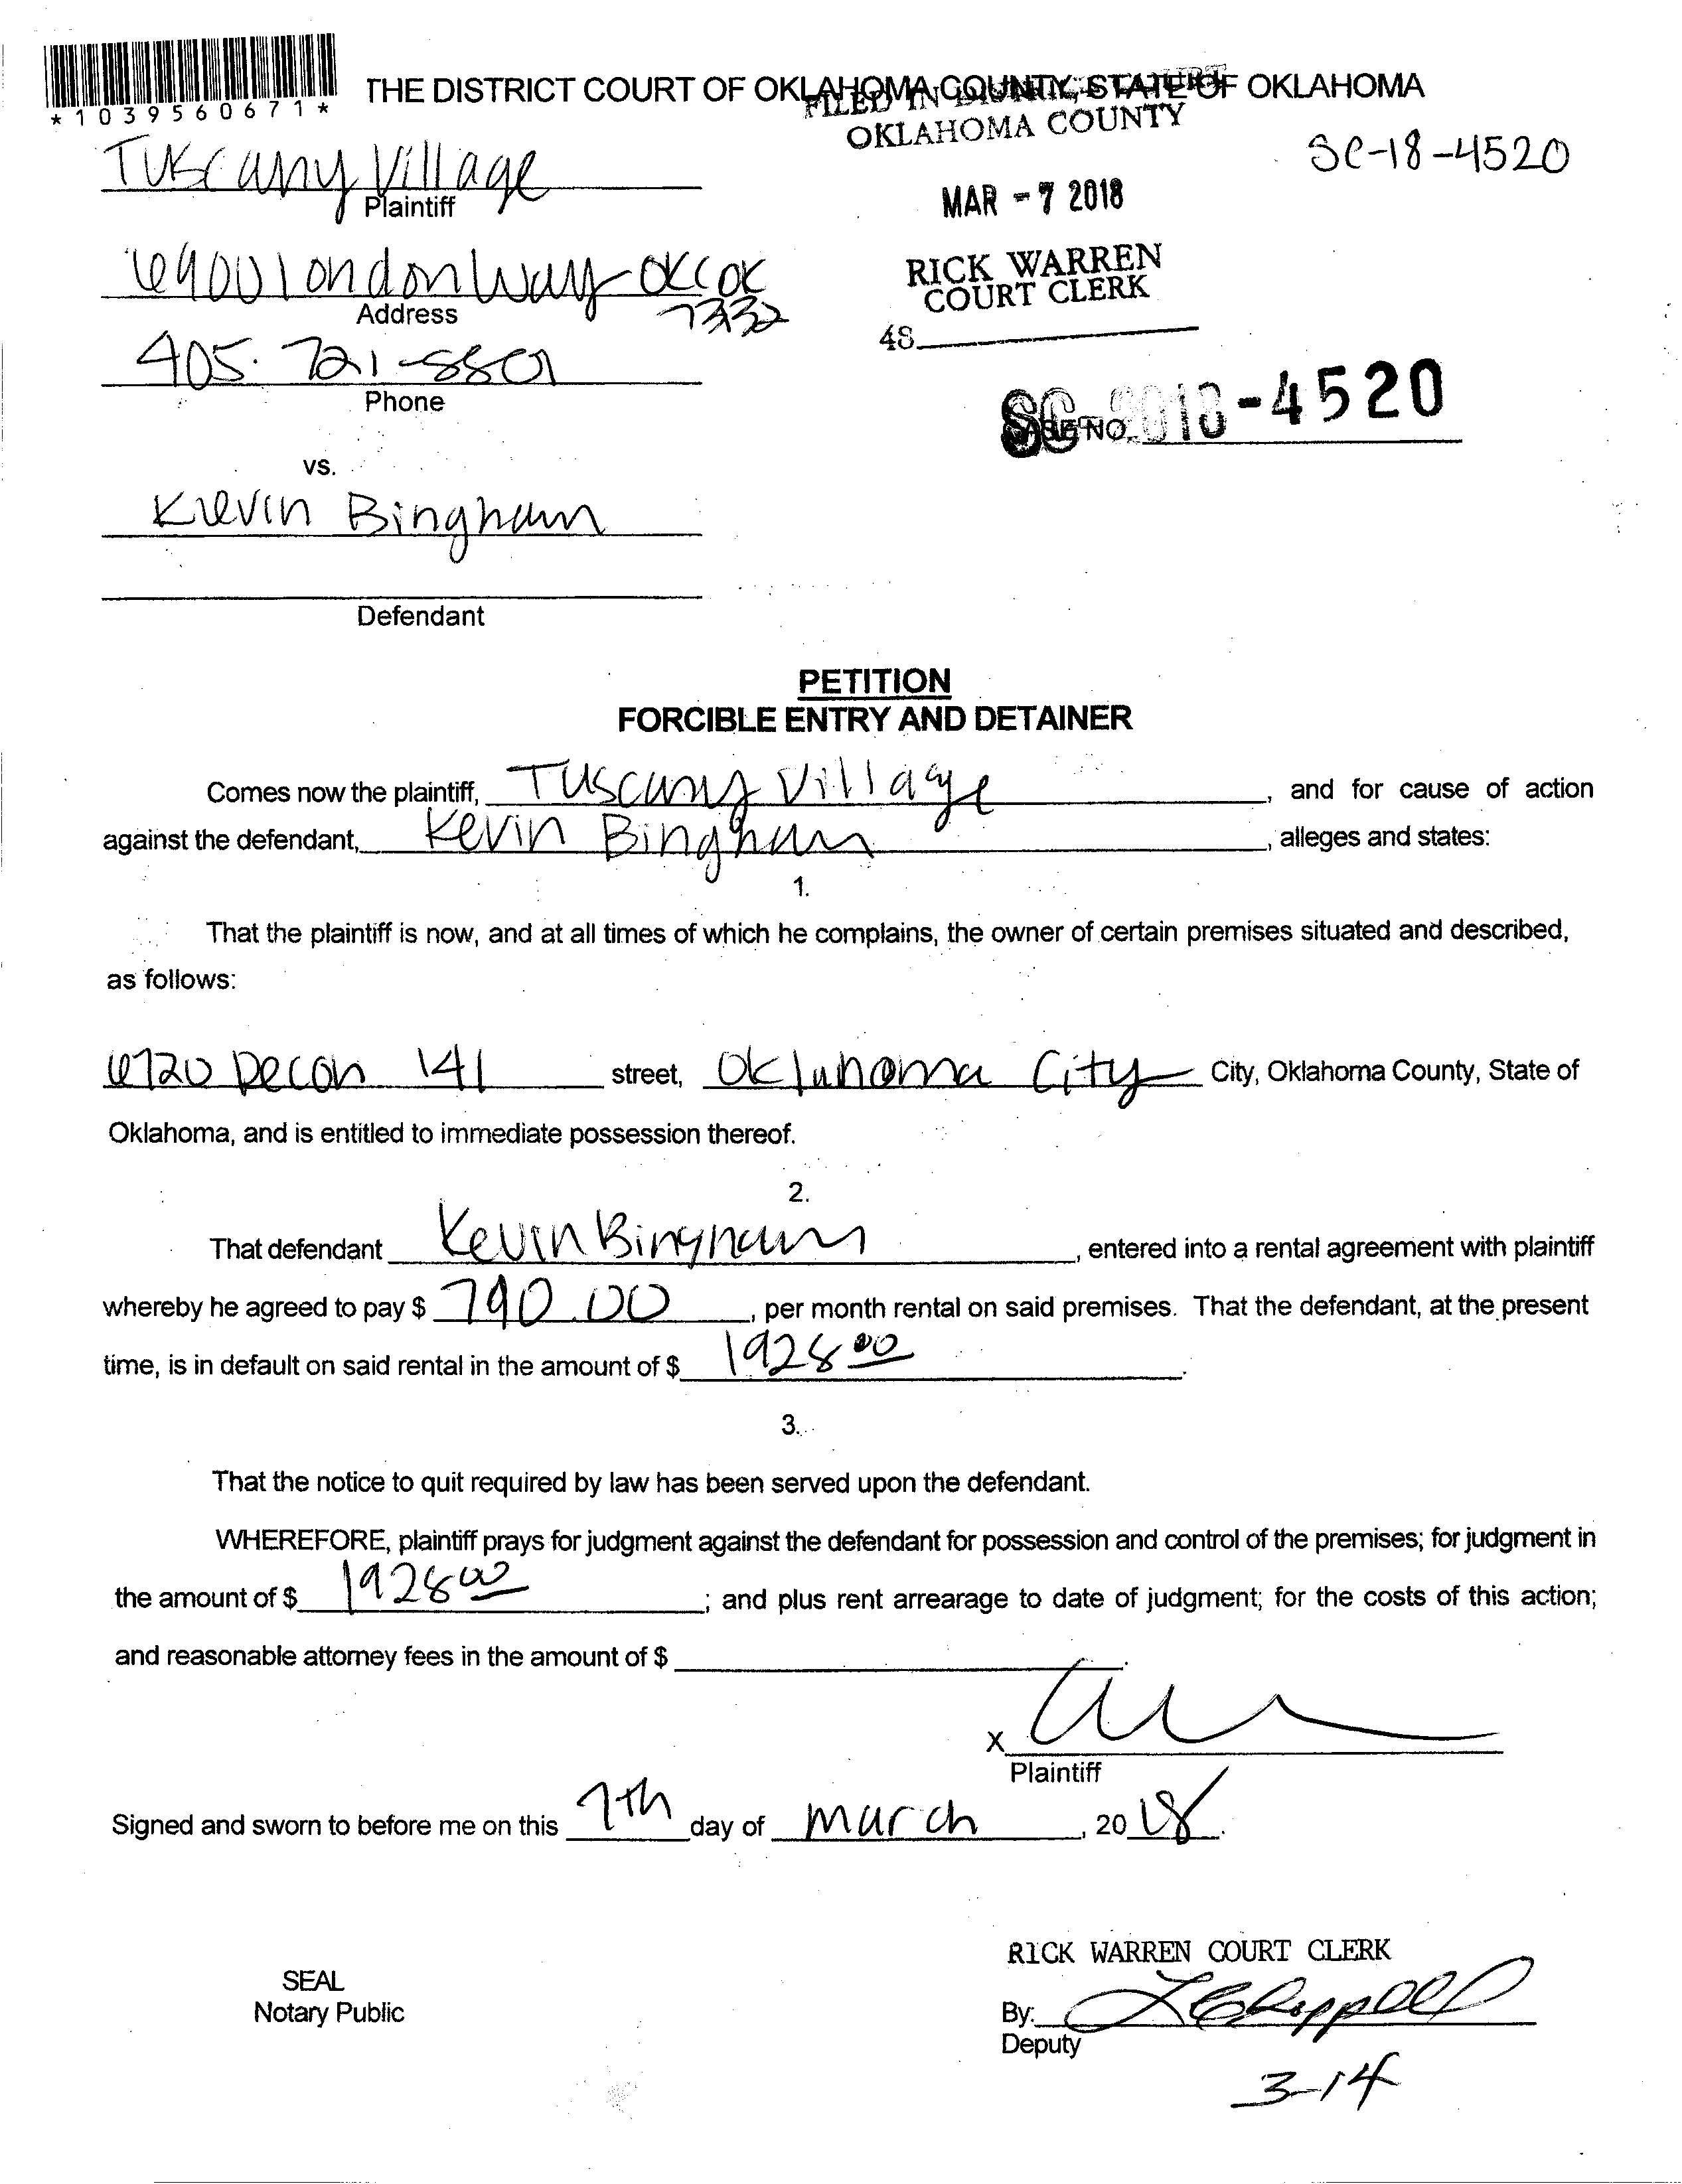 *1039560671*
THE DISTRICT COURT OF OKLAHOMA COUNTY, STATE OF OKLAHOMA
FILED IN DISTRICT COURT
OKLAHOMA COUNTY
SC-18-4520
Tuscany Village
Plaintiff
MAR - 7 2018
6900 London Way OKC OK
7332
Address
RICK WARREN
COURT CLERK
48
405. 721-8801
Phone
SC-2018-4520
CASE NO.
vs.
Kevin Bingham
Defendant
PETITION
FORCIBLE ENTRY AND DETAINER
Comes now the plaintiff, Tuscany Village, and for cause of action
against the defendant, Kevin Bingham, alleges and states:
1.
That the plaintiff is now, and at all times of which he complains, the owner of certain premises situated and described,
as follows:
6720 Decon 141 street, Oklahoma City City, Oklahoma County, State of
Oklahoma, and is entitled to immediate possession thereof.
2.
That defendant Kevin Bingham, entered into a rental agreement with plaintiff
whereby he agreed to pay $ 790.00, per month rental on said premises. That the defendant, at the present
time, is in default on said rental in the amount of $ 1928 00.
3.
That the notice to quit required by law has been served upon the defendant.
WHEREFORE, plaintiff prays for judgment against the defendant for possession and control of the premises; for judgment in
the amount of $ 1928 00; and plus rent arrearage to date of judgment; for the costs of this action;
and reasonable attorney fees in the amount of $ .
X
Plaintiff
Signed and sworn to before me on this 7th day of March, 2018.
RICK WARREN COURT CLERK
SEAL
Notary Public
By:
Deputy
3-14